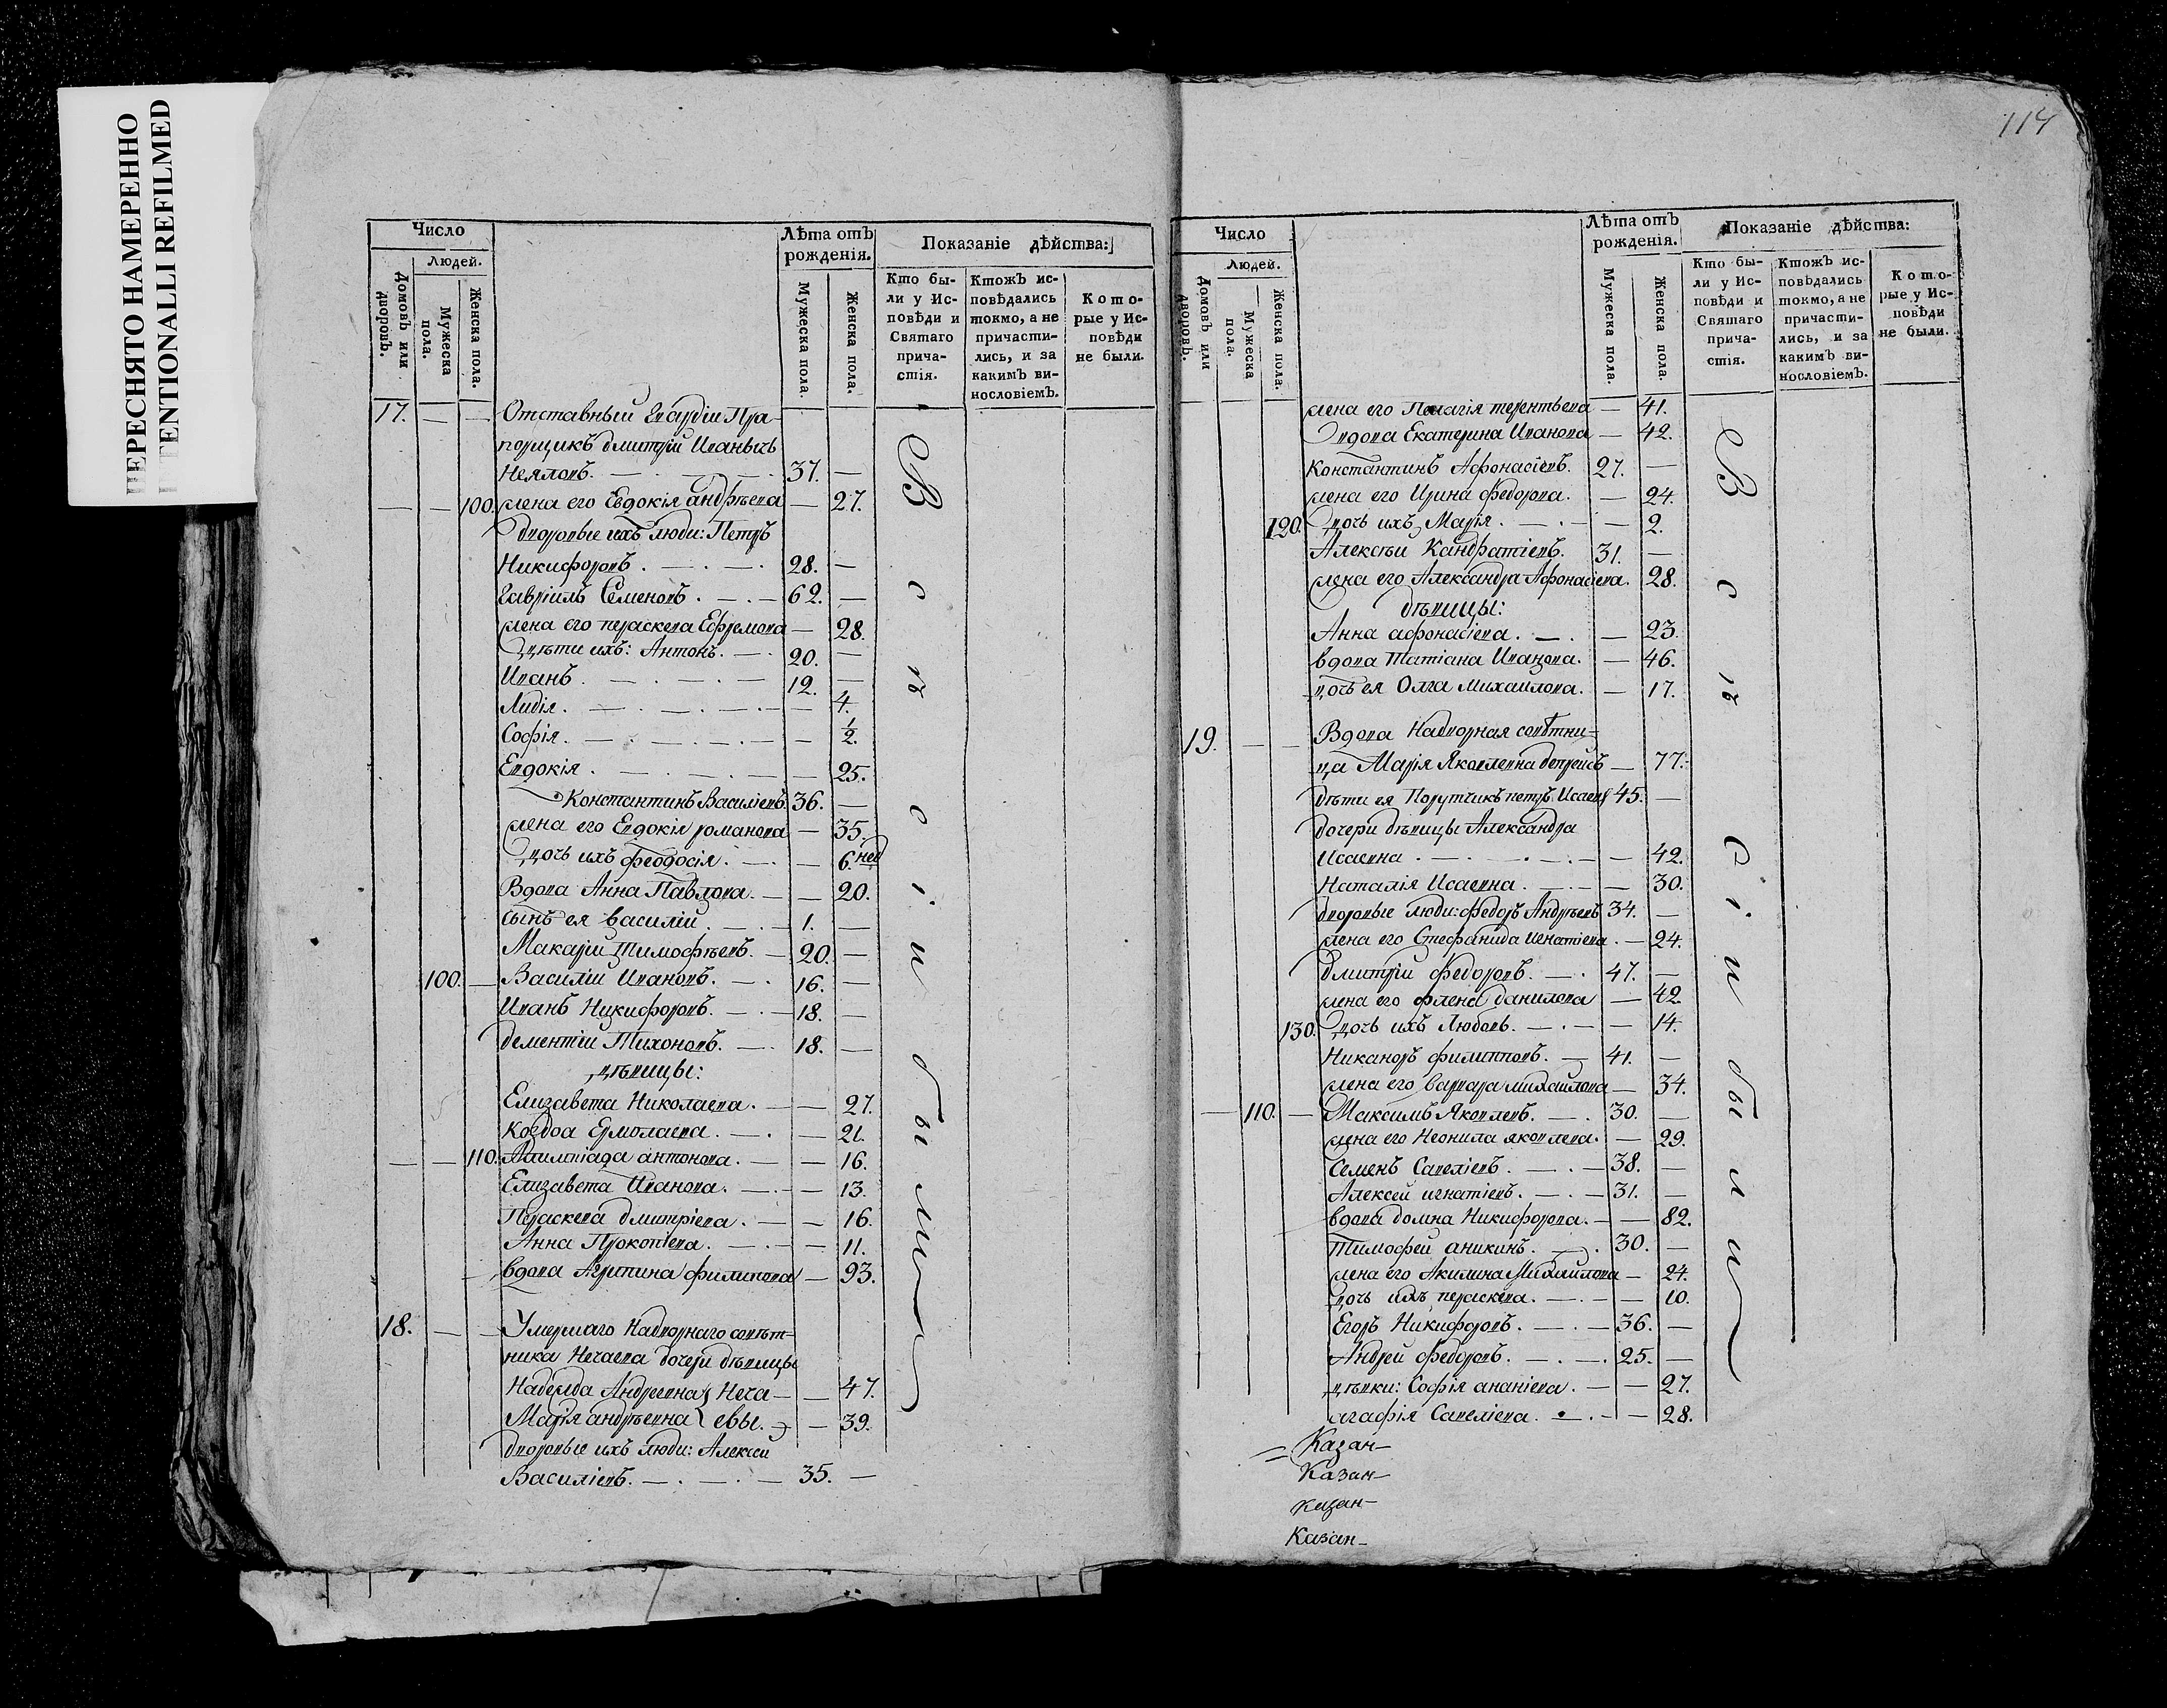 ПЕРЕСНЯТО НАМЕРЕННО
INTENTIONALLI REFILMED
114
Число
Людей.
Домовъ или дворовъ.
Мужеска пола.
Женска пола.
Лѣта отъ рожденія.
Мужеска пола.
Женска пола.
Показаніе дѣйства:
Кто были у Исповѣди и Святаго причастія.
Ктожъ исповѣдались токмо, а не причастились, и за какимъ винословіемъ.
Которые у Исповѣди не были.
17. — — Отставный Гвардіи Пра-
порщикъ дмитрій Иванычь
Неяловъ. — 37. —
— — 100. жена его Евдокія андрѣева — 27.
дворовые ихъ люди: Петръ
Никифоровъ. — 28. —
Гавріилъ Семеновъ. — 62. —
жена его параскева Ефремова — 28.
дѣти ихъ: Антонъ. — 20. —
Иванъ. — 12. —
Лидія. — — 4.
Софія. — — 1/2.
Евдокія. — — 25.
Константинъ Василіевъ. 36. —
жена его Евдокія романова — 35.
дочь ихъ феодосія. — — 6. нед
Вдова Анна Павлова. — — 20.
сынъ ея василій. — 1. —
Макарій Тимофѣевъ. — 20. —
100. — Василій Ивановъ. — 16. —
Иванъ Никифоровъ. — 18. —
дементій Тихоновъ. — 18. —
дѣвицы:
Елизавета Николаева. — — 27.
Ермолаева. — — 21.
— — 110. Алимпіада антонова. — — 16.
Елизавета Иванова. — — 13.
Параскева дмитріева. — — 16.
Анна Прокопіева. — — 11.
вдова Агрипина филипова — 93.
18. — — Умершаго Надворнаго совѣт-
ника Нечаева дочери дѣвицы
Надежда Андреевна } Неча- — 47.
Марія андрѣевна } евы. — 39.
дворовые ихъ люди: Алексѣй
Василіевъ. — 35. —
В с ѣ с і и б ы л и
Число
Людей.
Домовъ или дворовъ.
Мужеска пола.
Женска пола.
Лѣта отъ рожденія.
Мужеска пола.
Женска пола.
Показаніе дѣйства:
Кто были у Исповѣди и Святаго причастія.
Ктожъ исповѣдались токмо, а не причастились, и за какимъ винословіемъ.
Которые у Исповѣди не были.
жена его Пелагія терентьева — 41.
вдова Екатерина Иванова — 42.
Константинъ Афонасіевъ. 27. —
жена его Ирина федорова. — 24.
120. дочь ихъ Марія. — — 2.
Алексѣи Кандратіевъ. 31. —
жена его Александра Афонасіева. 28.
дѣвицы:
Анна афонасіева. — — 23.
вдова Татіана Иванова. — 46.
дочь ея Олга михаилова. — 17.
19. — — Вдова Надворная совѣтни-
ца Марія Яковлевна — 77.
дѣти ея Порутчикъ петръ Исаевъ 45. —
дочери дѣвицы Александра
Исаевна. — — 42.
Наталія Исаевна. — — 30.
дворовые люди: федоръ Андрѣевъ 34. —
жена его Стефанида игнатіева. — 24.
дмитрій федоровъ. — 47. —
жена его данилова — 42.
130. дочь ихъ Любовь. — — 14.
Никаноръ филипповъ. — 41. —
жена его варвара михаилова — 34.
— 110. — Максимъ Яковлевъ. — 30. —
жена его Неонила яковлева. — 29.
Семенъ Савеліевъ. — 38. —
Алексей игнатіевъ. — 31. —
вдова домна Никифорова. — — 82.
Тимофей аникинъ. — 30. —
жена его Акилина Михаилова — 24.
дочь ихъ параскева. — — 10.
Егоръ Никифоровъ. — 36. —
Андрей федоровъ. — 25. —
дѣвки: Софія ананіева. — — 27.
агафія Савеліева. — — 28.
В с ѣ с і и б ы л и
Казан-
Казан-
Казан-
Казан-